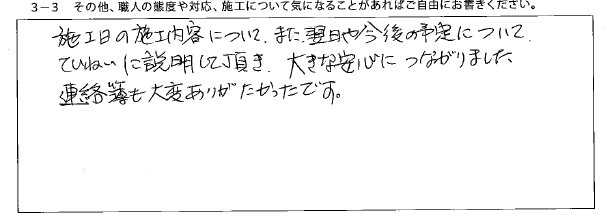 3-3 その他、職人の態度や対応、施工について気になることがあればご自由にお書きください。
施工日の施工内容について、また、翌日や今後の予定について
ていねいに説明して頂き、大きな安心につながりました。
連絡簿も大変ありがたかったです。